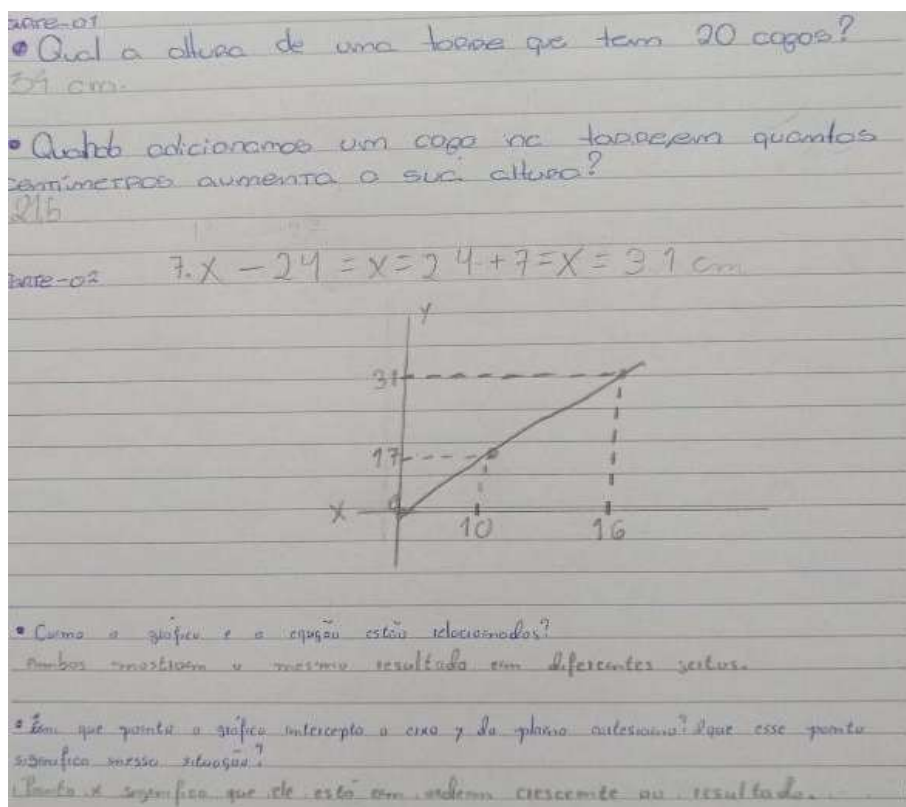 • Qual a altura de uma torre que tem 20 copos?
31 cm.
• Quando adicionamos um copo na torre, em quantos
centímetros aumenta a sua altura?
216
7.x - 24 = x = 24 + 7 = x = 31 cm
parte-02
Y
31
17
X
10
16
• Como o gráfico e a equação estão relacionados?
Ambos mostram o mesmo resultado em diferentes
• Em que ponto o gráfico intercepta o eixo y do plano cartesiano? O que esse ponto
significa nessa situação?
Ponto x significa que ele está em ordem crescente ao resultado.